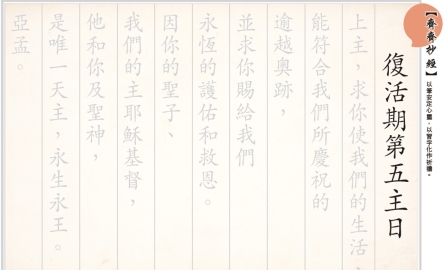 【齊齊抄經】
以筆安定心靈,以習字化作祈禱。
復活期第五主日
上主,求你使我們的生活,
能符合我們所慶祝的
逾越奧跡,
並求你賜給我們
永恆的護佑和救恩。
因你的聖子、
我們的主耶穌基督,
他和你及聖神,
是唯一天主,永生永王。
亞孟。